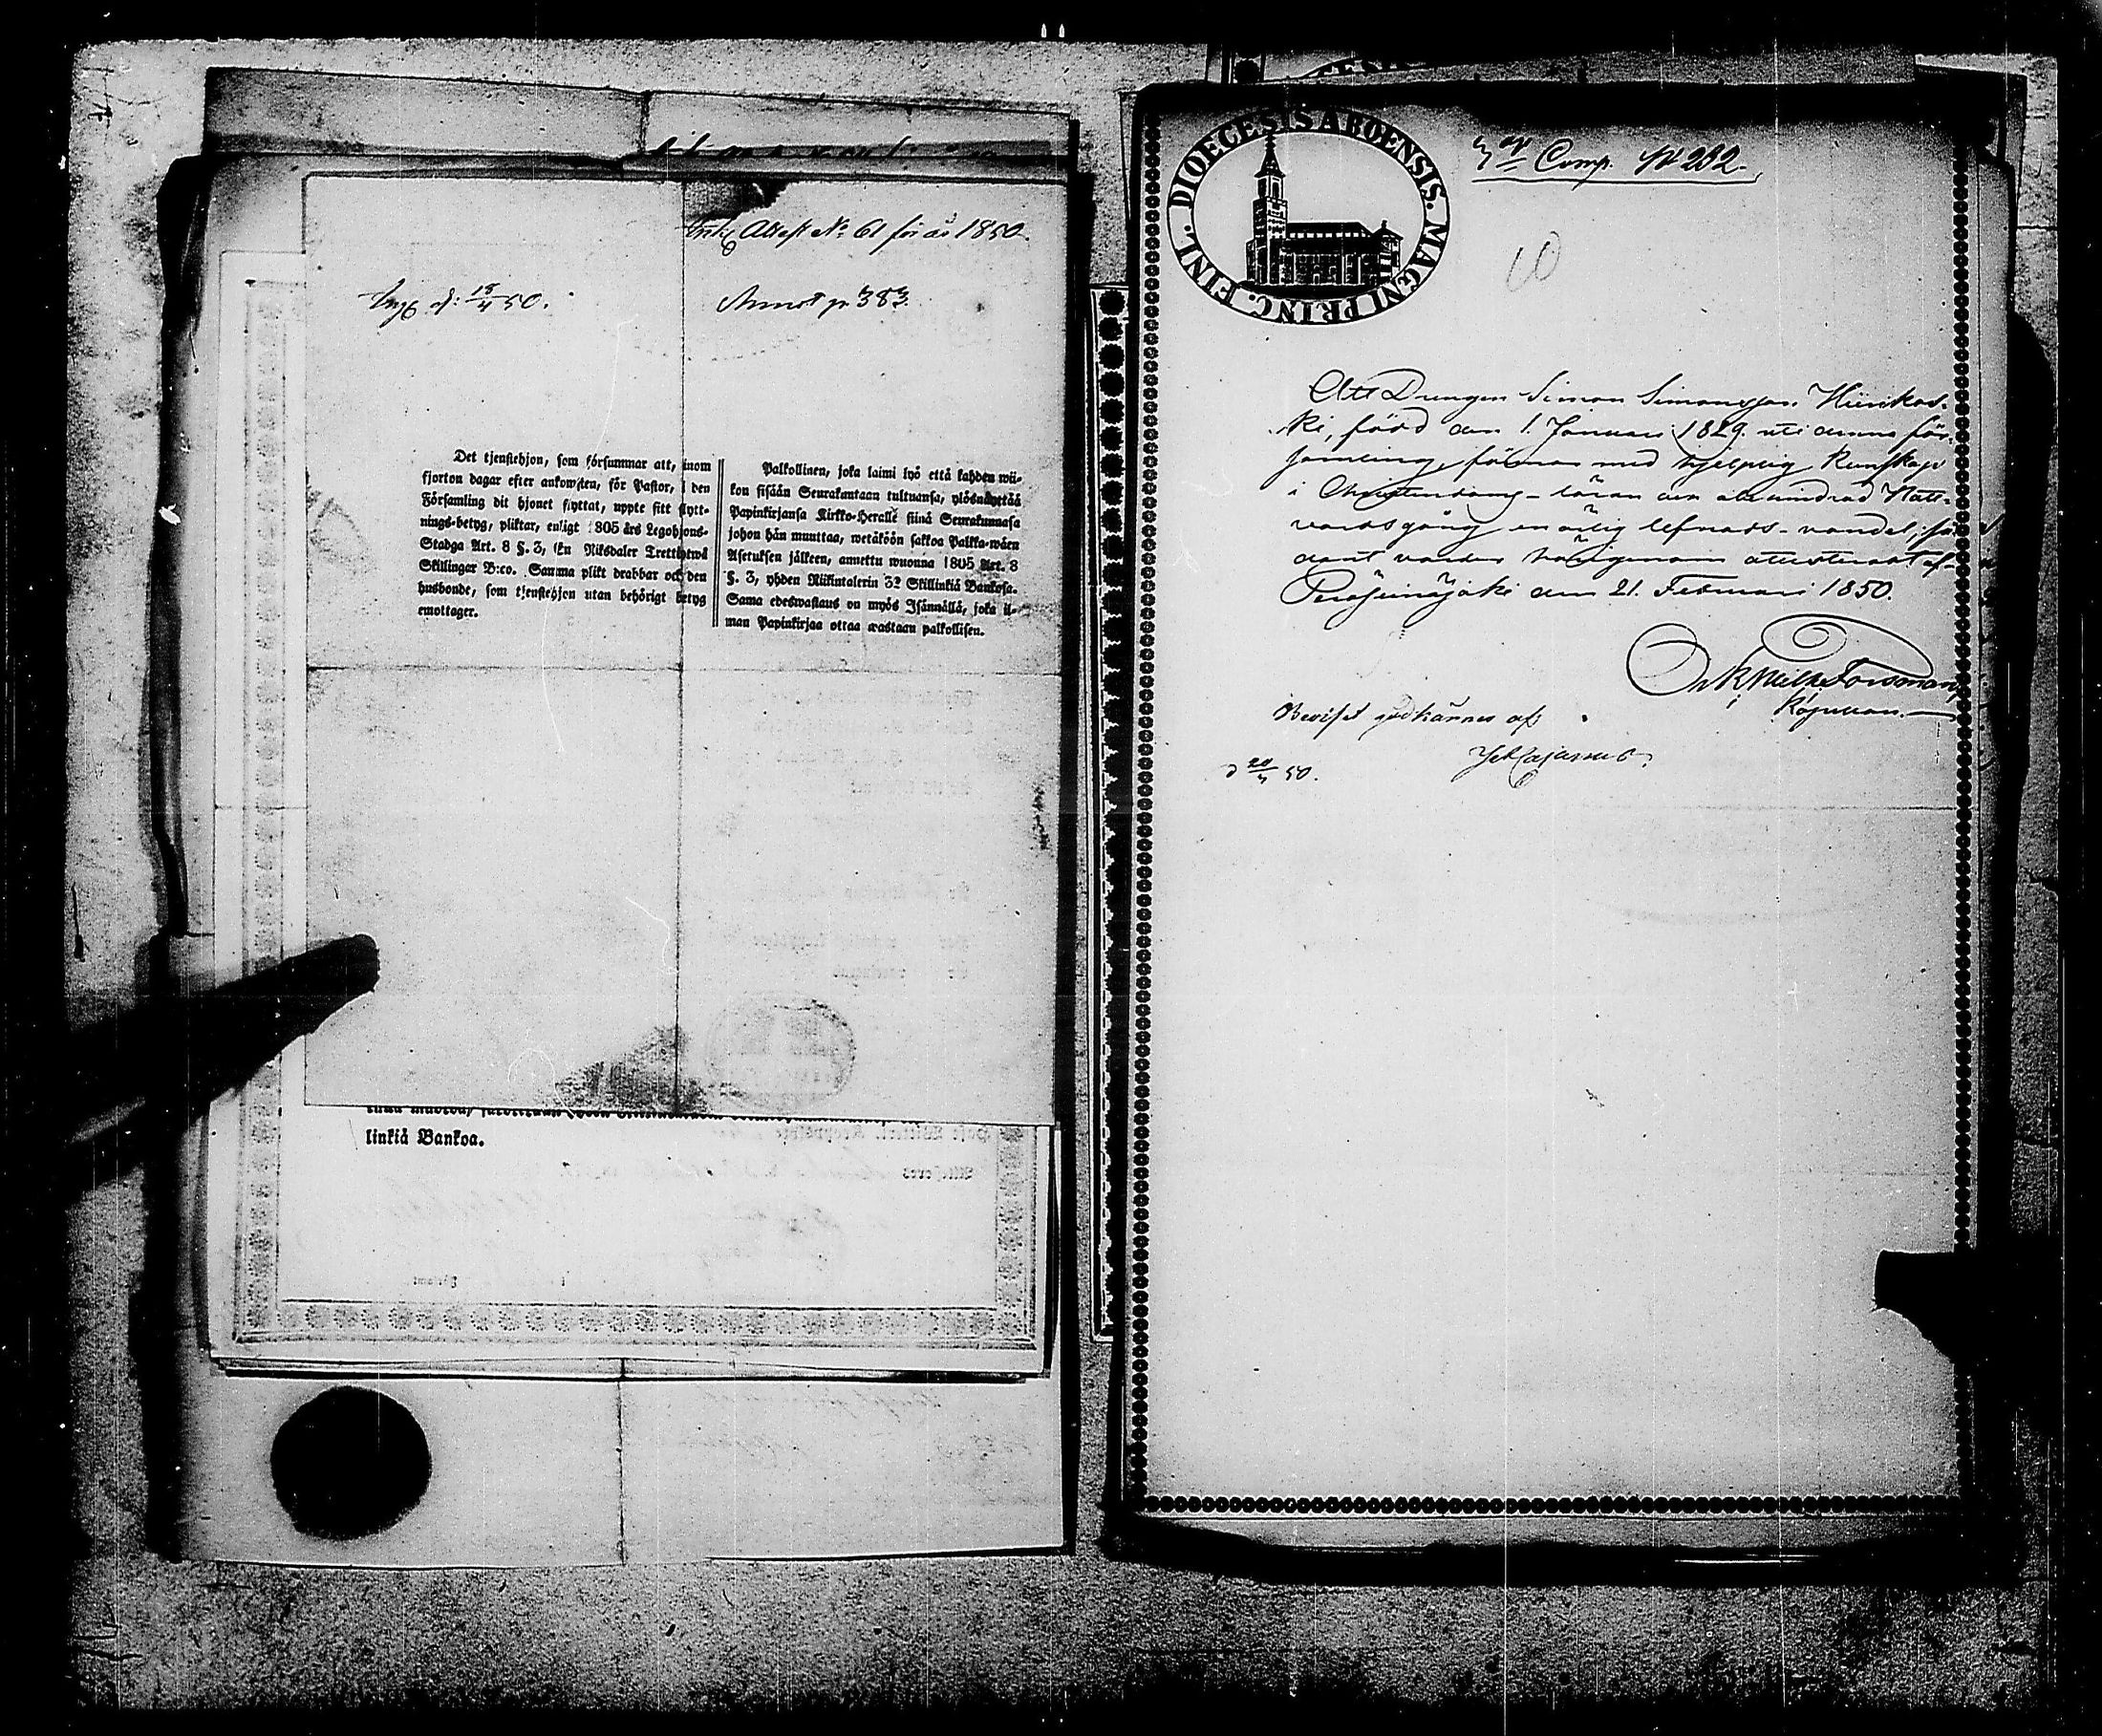 Attest No 61 för år 1850.
d: 15/4 50.
Annot p. 383.
Det tjenstehjon, som försummar att, inom
fjorton dagar efter ankomsten, för Pastor, i den
Församling dit hjonet flyttat, uppte sitt flytt-
nings-betyg, pliktar, enligt 1805 års Legohjons-
Stadga Art. 8 §. 3, En Riksdaler Trettiotwå
Skillingar B:co. Samma plikt drabbar ock den
husbonde, som tjenstehjon utan behörigt betyg
emottager.
Palkollinen, joka laimi lyö että kahden wii-
kon sisään Seurakuntaan tultuansa, ylösnäyttää
Papinkirjansa Kirkko-Heralle siinä Seurakunnasa
johon hän muuttaa, wetäköön sakkoa Palkka-wäen
Asetuksen jälkeen, annettu wuonna 1805 Art. 8
§. 3, yhden Riikintalerin 32 Skillinkiä Bankosa.
Sama edeswastaus on myös Isännällä, joka il-
man Papinkirjaa ottaa wastaan palkollisen.
linkiä Bankoa.
DIOECESIS ABOENSIS. MAGNI PRINC. FINL.
Comp. No 232.
10
Att Drängen Simon Simonsson Hiirikos-
ki, född den 1. Januari 1829. uti denna för-
samling, finnes med hjelplig kunskap
i Christendoms-läran och Natt-
vardsgång en ärlig lefnads-vandel; så-
dant varder härigenom attesteradt af
Peräseinäjoki den 21. Februari 1850.
Forsman
Kapellan.
Beviset godkännes af:
Cajanus.
50.